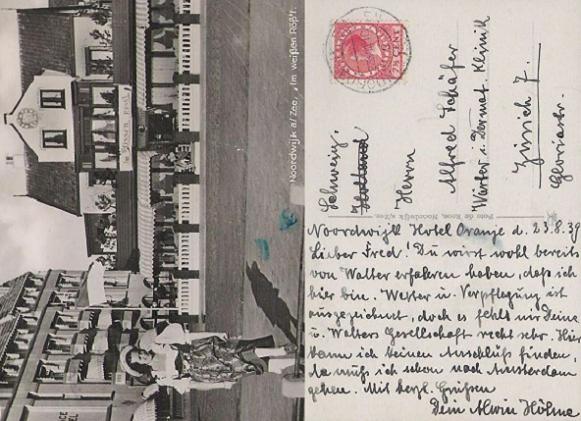 Noordwijk a/Zee, „Im weißen Röß'l".
7½ CENT
Schweiz.
Herrn
Alfred Schäfer
Wärter i. Dermat. Klinik
Zürich 7.
Gloriastr.
Foto de Roos, Noordwijk a/Zee.
Noordwijk Hotel Oranje d. 23.8.39
Lieber Fred! Du wirst wohl bereits
von Walter erfahren haben, daß ich
hier bin. Wetter u. Verpflegung ist
ausgezeichnet, doch es fehlt mir Deine
u. Walters Gesellschaft recht sehr. Hier
kann ich keinen Anschluß finden,
da muß ich schon nach Amsterdam
gehen. Mit herzl. Grüßen
Dein Alwin